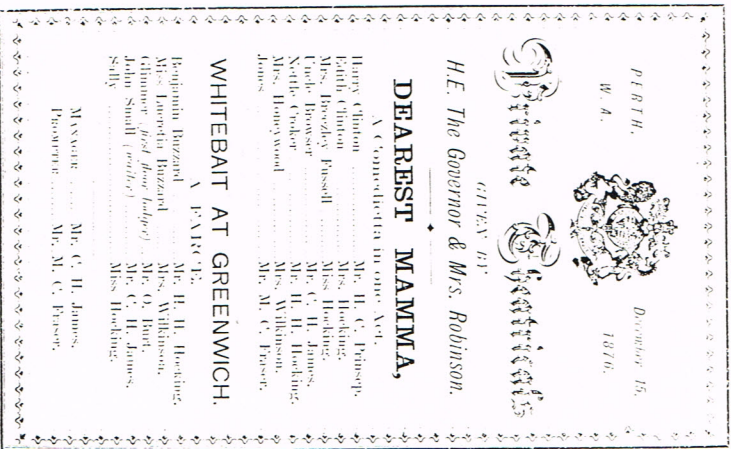 PERTH, W. A.
December 15, 1876.
Private Theatricals
GIVEN BY
H.E. The Governor & Mrs. Robinson.
DEAREST MAMMA,
A Comedietta in one Act.
Harry Clinton ........ Mr. H. C. Prinsep.
Edith Clinton ........ Mrs. Hocking.
Mrs. Breezley Fussell ........ Miss Hocking.
Uncle Browser ........ Mr. C. H. James.
Nettle Croker ........ Mr. H. H. Hocking.
Mrs. Honeywood ........ Mrs. Wilkinson.
Jones ........ Mr. M. C. Fraser.
WHITEBAIT AT GREENWICH.
A FARCE.
Benjamin Buzzard ........ Mr. H. H. Hocking.
Miss Lucretia Buzzard ........ Mrs. Wilkinson.
Glimmer (first floor lodger) ........ Mr. O. Burt.
John Small (waiter) ........ Mr. C. H. James.
Sally ........ Miss Hocking.
MANAGER ........ Mr. C. H. James.
PROMPTER ........ Mr. M. C. Fraser.